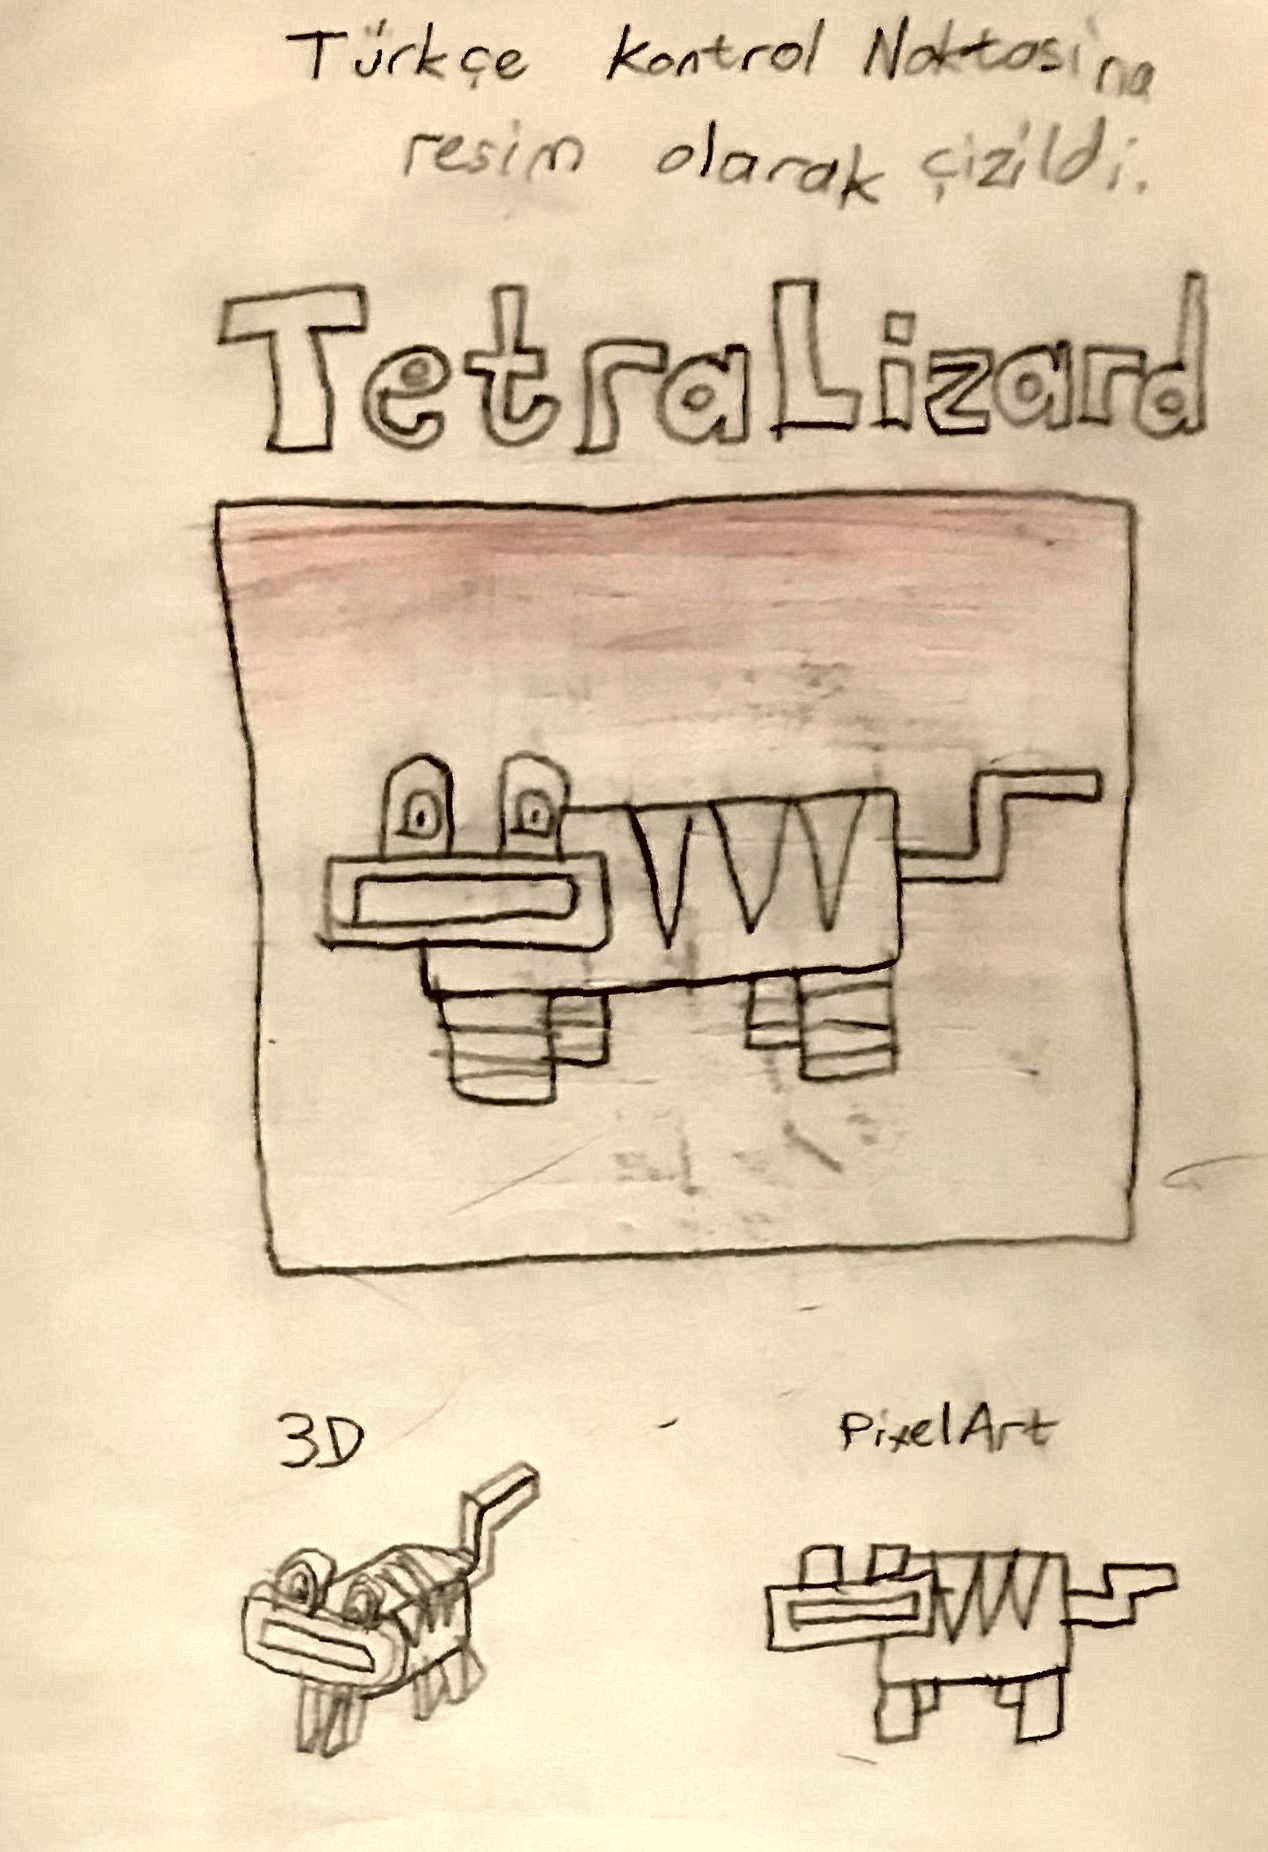 Türkçe Kontrol Noktasina
resim olarak çizildi.
TetraLizard
3D
PixelArt